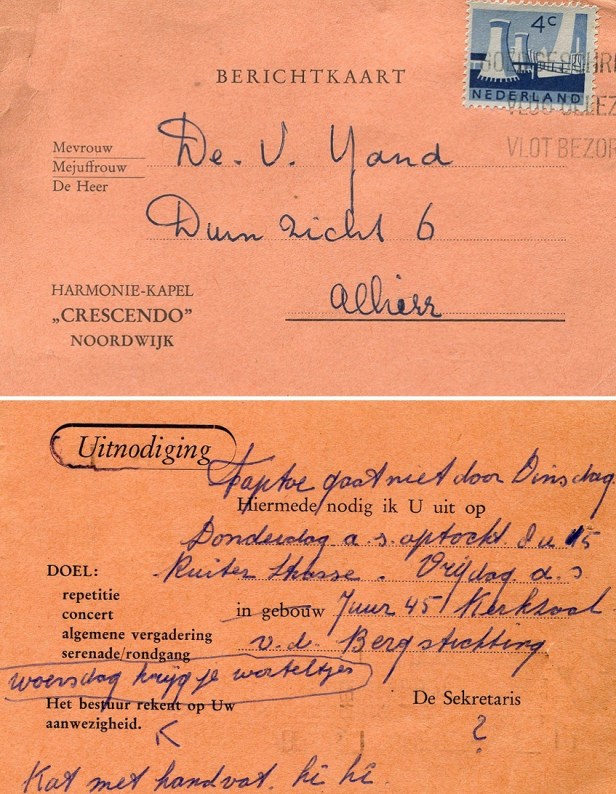 4c
NEDERLAND
VLOT BEZOR
BERICHTKAART
Mevrouw
Mejuffrouw
De Heer
De. V. Yand
Duin zicht 6
Alhier
HARMONIE-KAPEL
„CRESCENDO”
NOORDWIJK
Uitnodiging
Taptoe gaat niet door Dinsdag
Hiermede nodig ik U uit op
Donderdag a.s. optocht 8 u 15
DOEL:
Ruiter . Vrijdag a.s
repetitie
concert
in gebouw 7 uur 45 Kerkzaal
algemene vergadering
serenade/rondgang
v.d. Bergstichting
woensdag krijg je worteltjes
Het bestuur rekent op Uw
aanwezigheid.
De Sekretaris
?
Kat met handvat. hi hi.